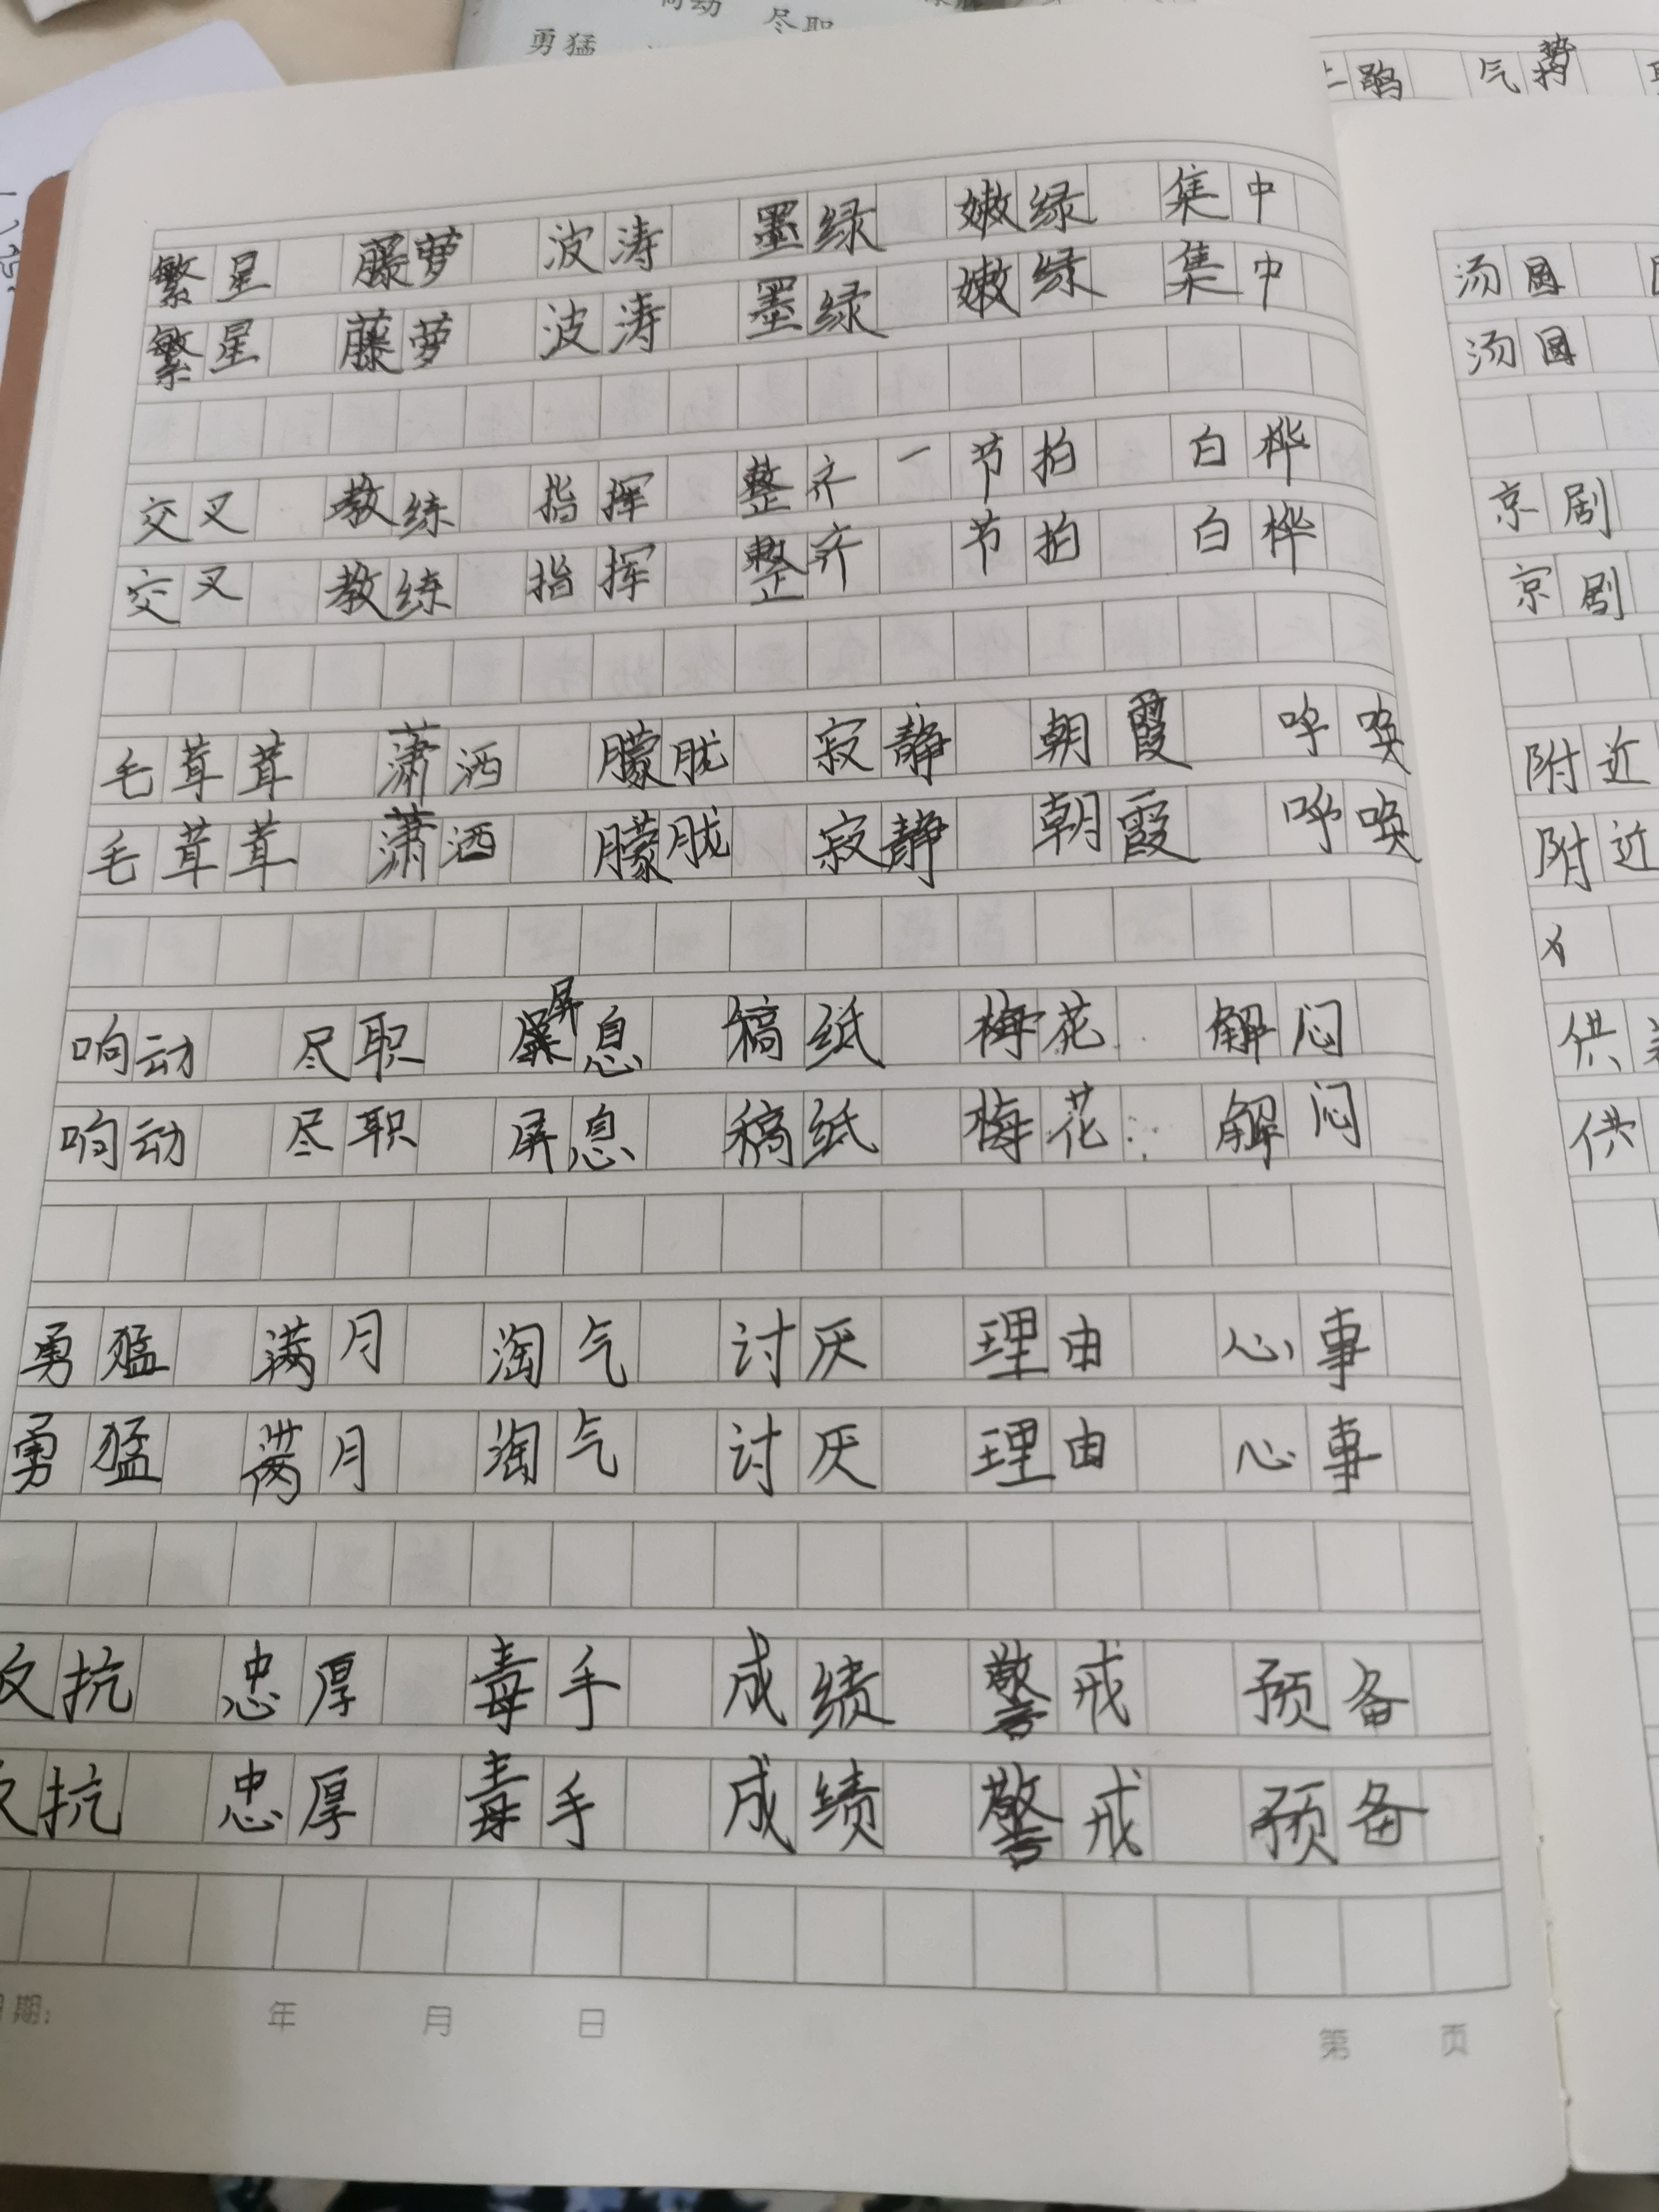 勇猛 尽职
气势
繁星 藤萝 波涛 墨绿 嫩绿 集中
繁星 藤萝 波涛 墨绿 嫩绿 集中
交叉 教练 指挥 整齐 节拍 白桦
交叉 教练 指挥 整齐 节拍 白桦
毛茸茸 潇洒 朦胧 寂静 朝霞 呼唤
毛茸茸 潇洒 朦胧 寂静 朝霞 呼唤
响动 尽职 屏息 稿纸 梅花 解闷
响动 尽职 屏息 稿纸 梅花 解闷
勇猛 满月 淘气 讨厌 理由 心事
勇猛 满月 淘气 讨厌 理由 心事
反抗 忠厚 毒手 成绩 警戒 预备
反抗 忠厚 毒手 成绩 警戒 预备
期: 年 月 日 第 页
汤圆
汤圆
京剧
京剧
附近
附近
供
供